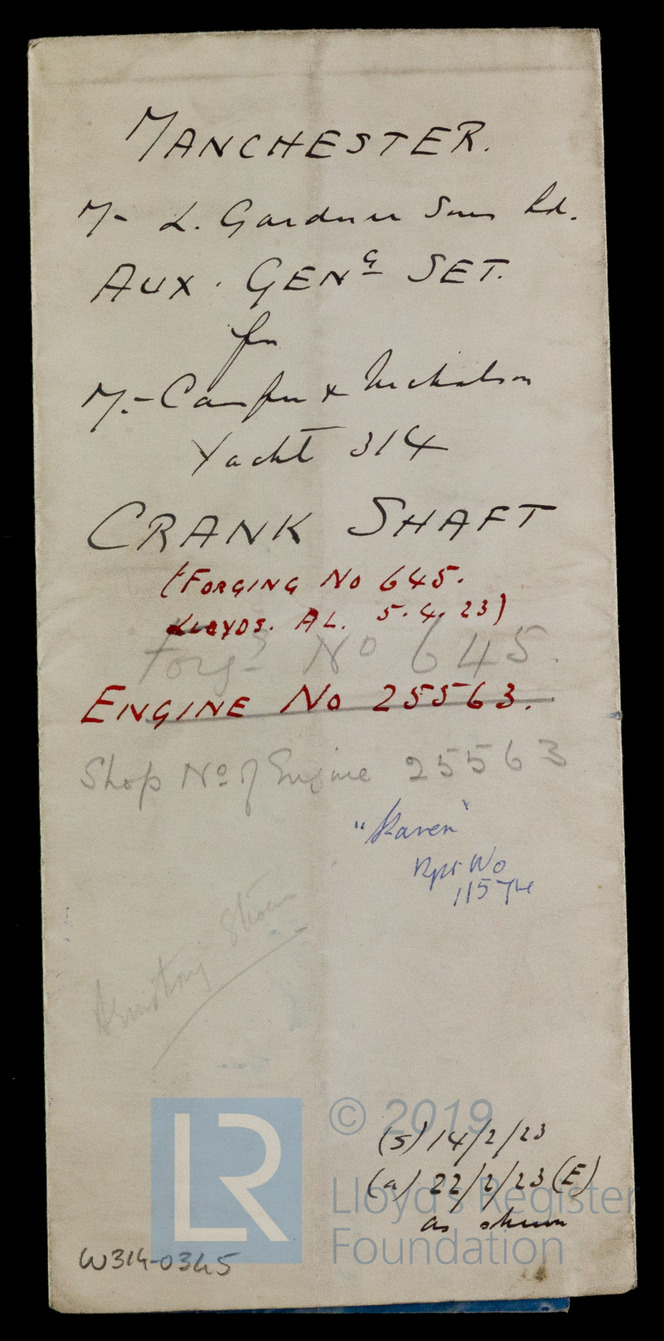 MANCHESTER.
M- L. Gardner Sons Ld.
AUX. GENG SET.
for
M.- Camper & Nicholson
Yacht 314
CRANK SHAFT
(FORGING No 645.
LLOYDS. AL. 5.4.23)
Forgg No 645.
ENGINE No 25563.
Shop No of Engine 25563
"
Rpt No
1157
Armstrong
(s) 14/2/23
(a) 22/2/23 (E)
as shewn
W314-0345
LR
© 2019
Lloyd's Register
Foundation